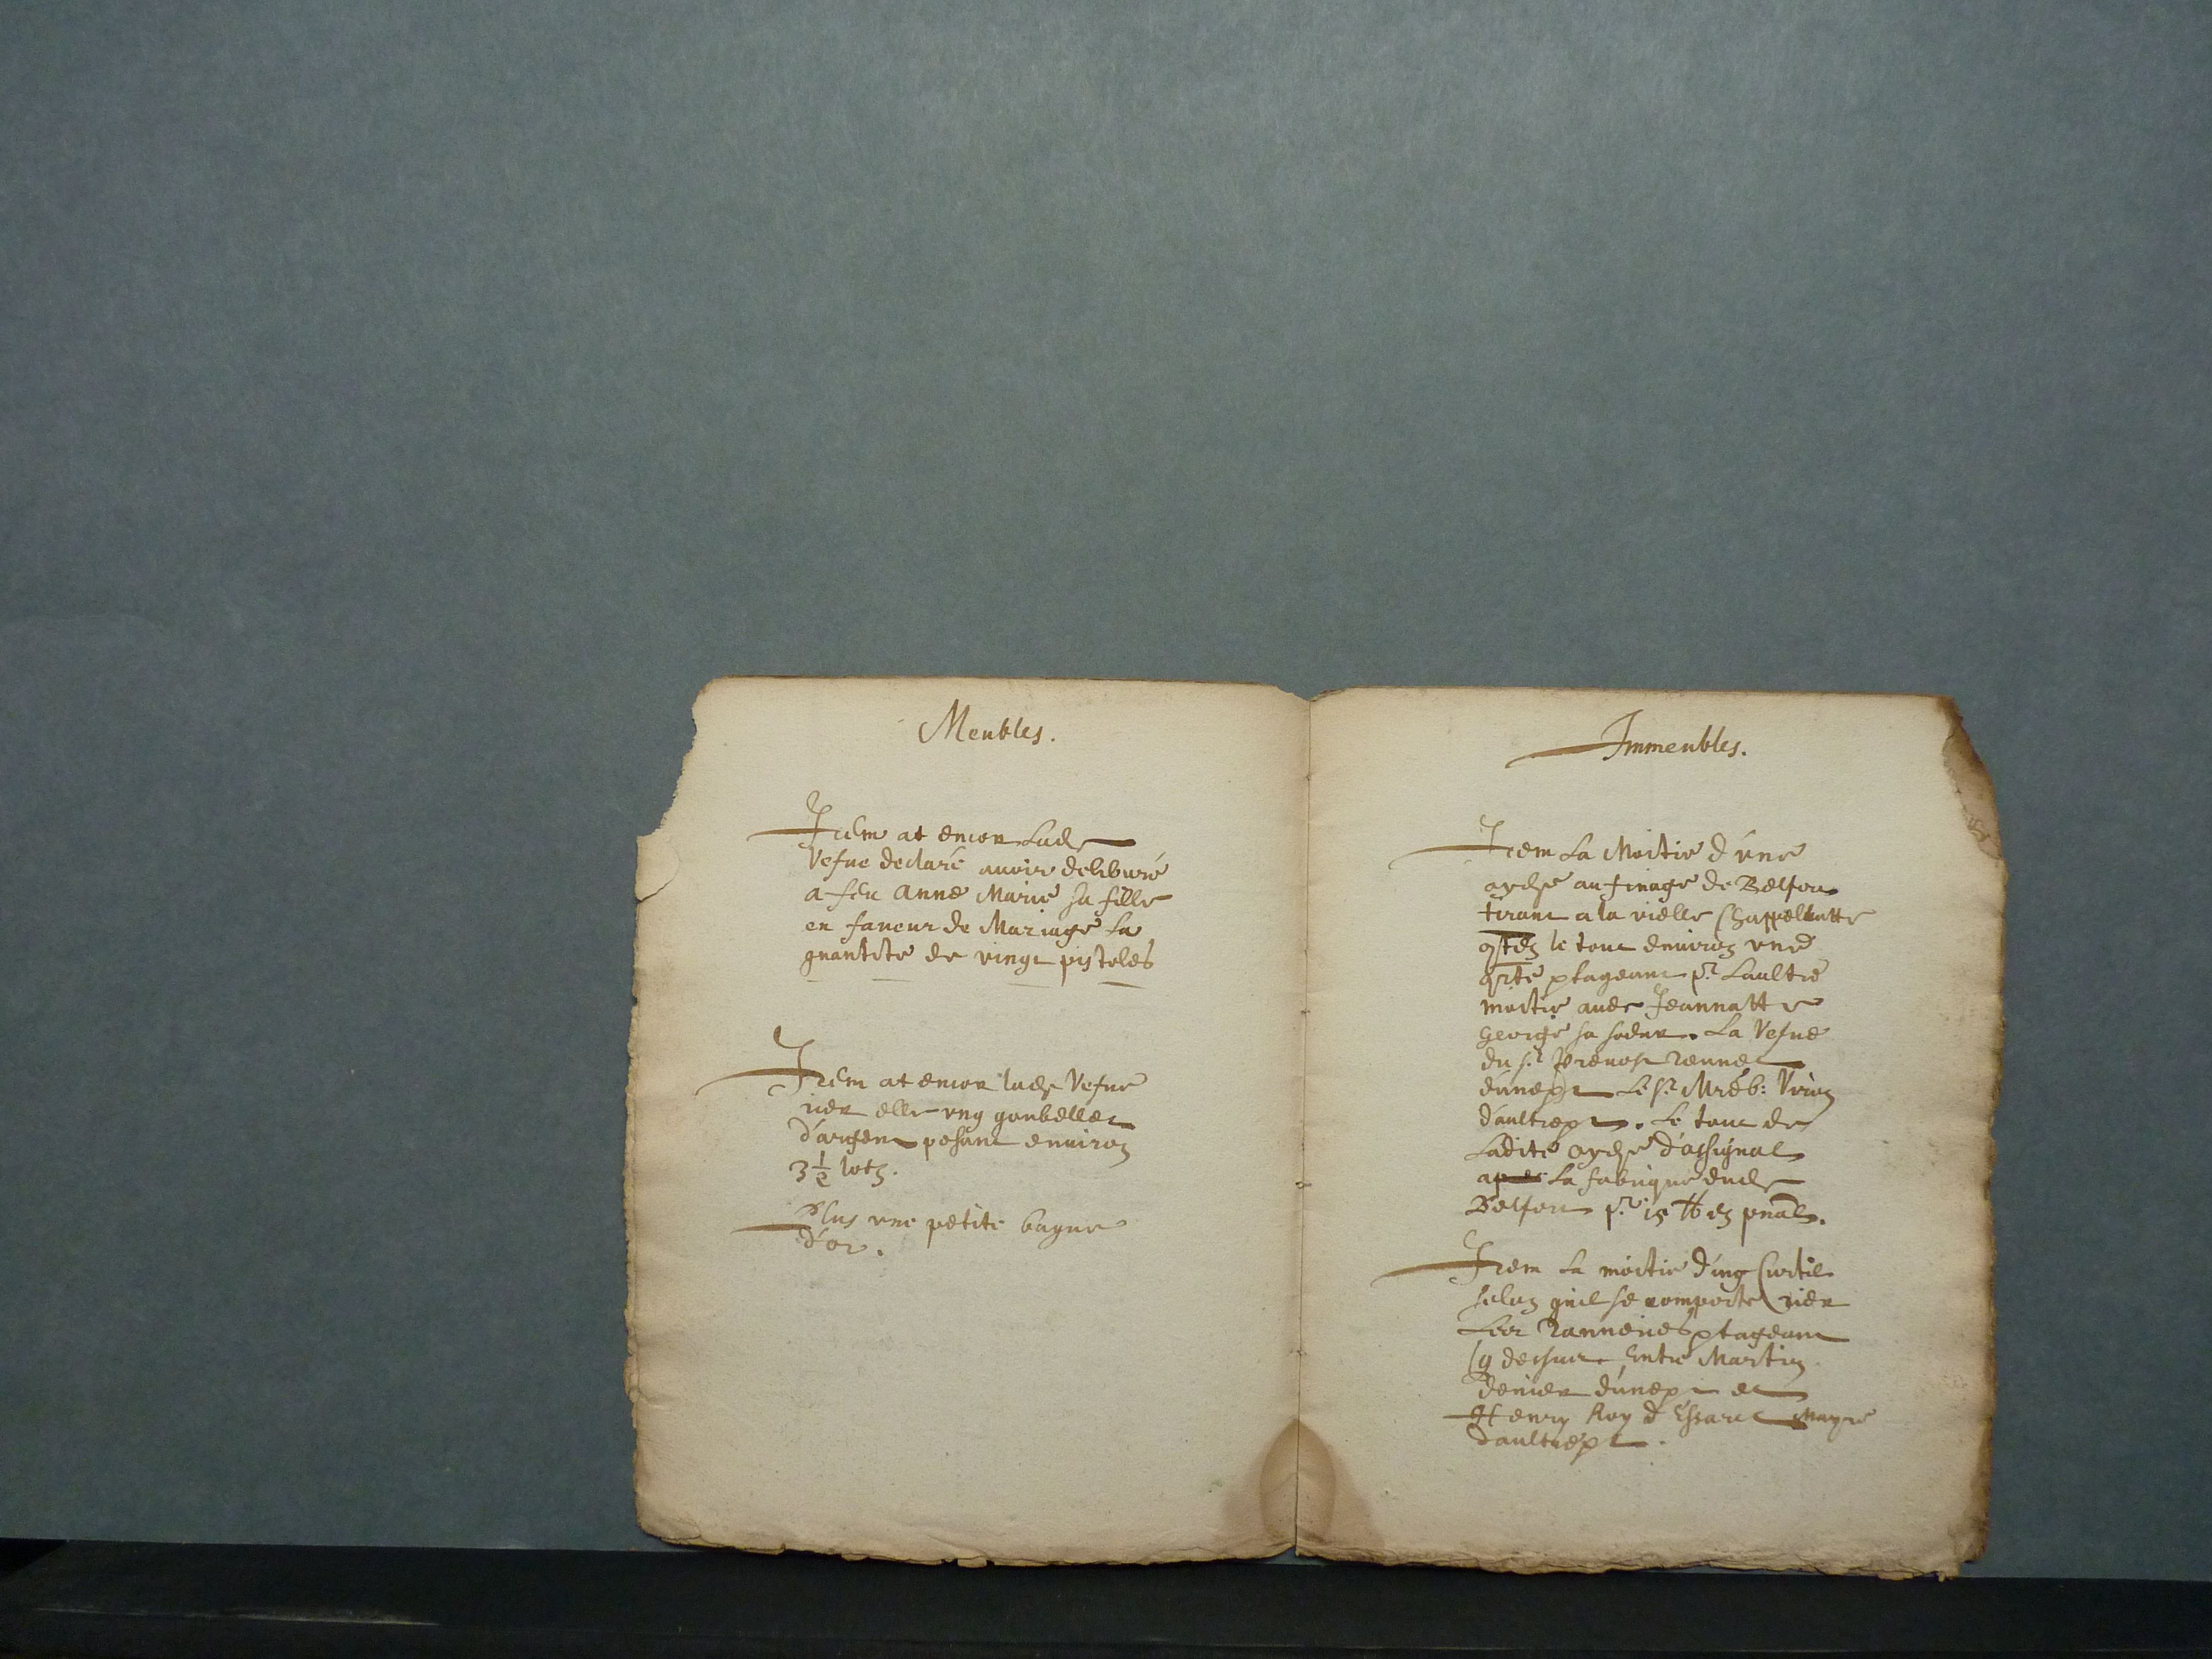 Meubles.
Item at encor lade
Vefue declaré auoir deliburé
a feu Anne Marie sa fille
en faueur de Mariage la
quantité de vingt pistoles
Item at encor lade Vefue
rier elle vng goubellet
d'argent pesant enuiron
3 1/2 lotz.
Plus vne petite bague
d'or.
Immeubles.
Item La Moitie d'vne
oyche au finage de Belfort
tirant a la vielle Chappellatte
le tout enuiron vne
qrte ptageant pr. Laultre
moitie auec Jeannatte
George sa soeur. La Vefue
du sr. Preuost
dunept Le sr.
d'aultrept. Le tout de
Ladite oyche d'assignal
a la fabrique dude
Belfort pr. 15 ℔ en pnal.
Item la moitie d'ung Curtil
selon quil se comporte rier
Les ptageant
Cy dessus Entre Martin
dunept et
Henry Roy d'Essert Mayre
d'aultrept.